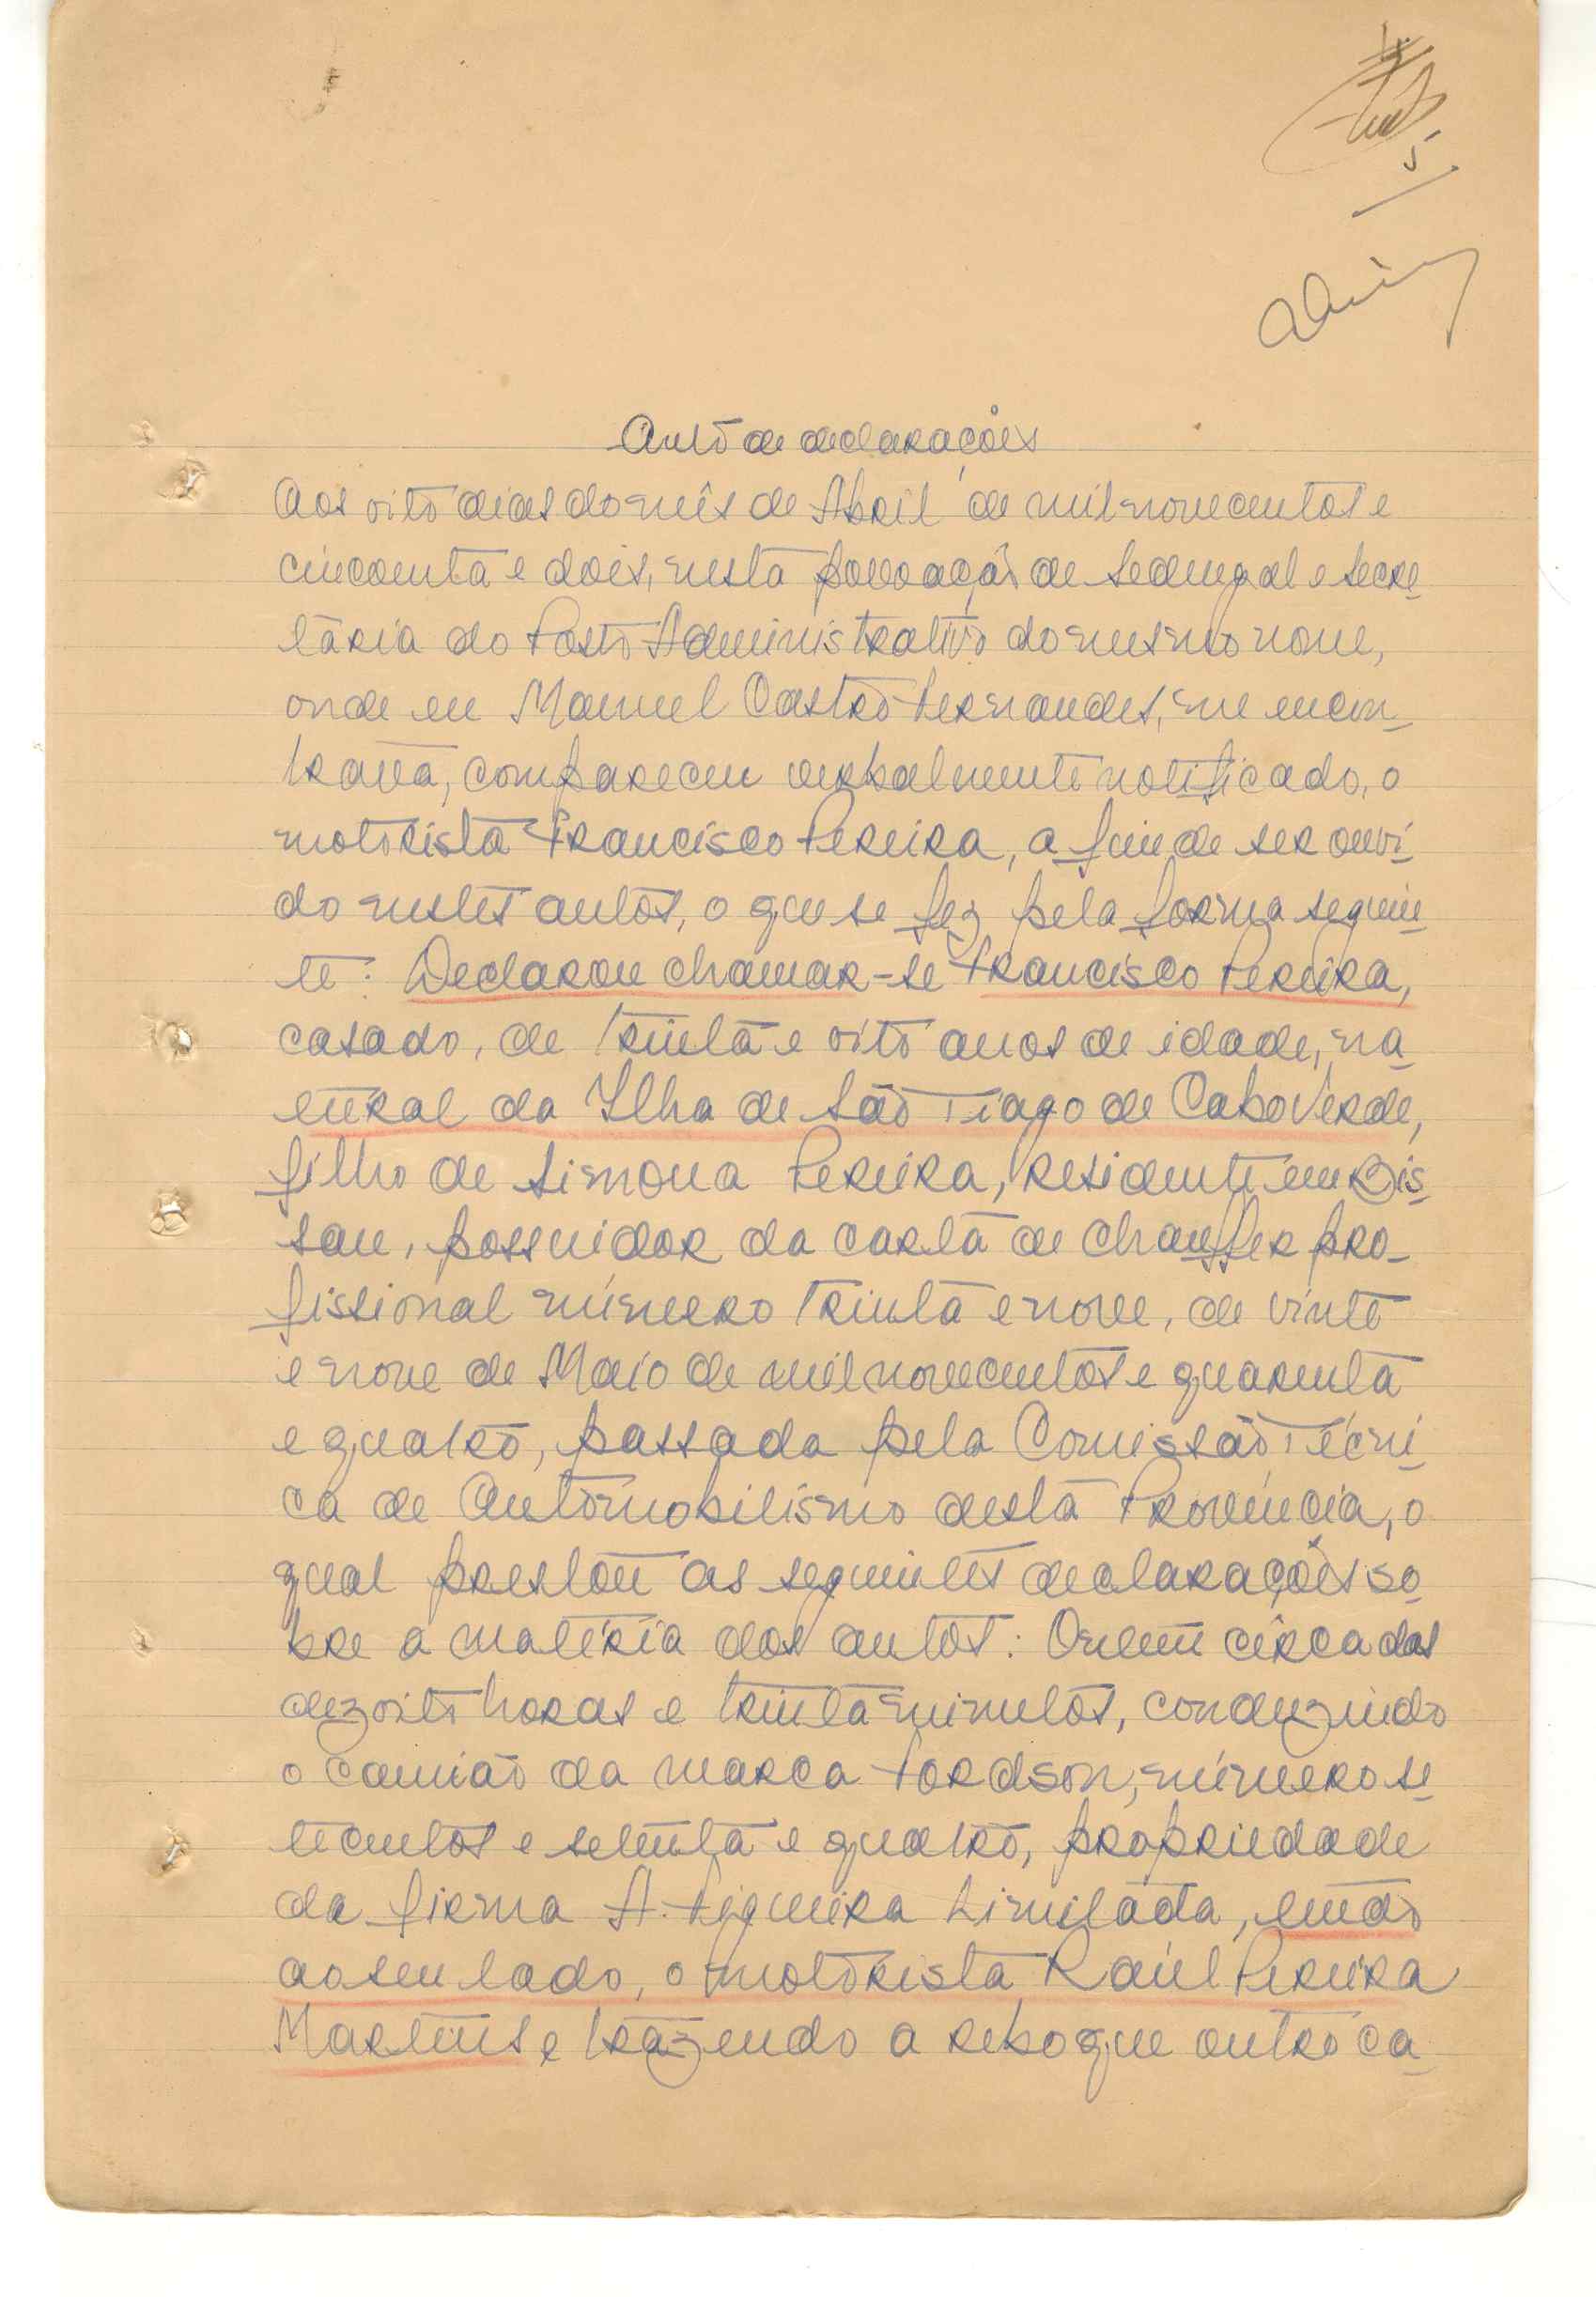 5
Auto de declarações
Aos oito dias do mês de Abril de mil novecentos e
cincoenta e dois, nesta povoação de Sedengal e secre-
tária do Posto Administrativo do mesmo nome,
onde eu Manuel Castro Fernandes, me encon-
trava, compareceu verbalmente notificado, o
motorista Francisco Pereira, a fim de ser ouvi-
do nestes autos, o que se fez pela forma seguin-
te: Declarou chamar-se Francisco Pereira,
casado, de trinta e oito anos de idade, na-
tural da Ilha de São Tiago de Cabo Verde,
filho de Simoua Pereira, residente em Bis-
sau, possuidor da carta de chauffer pro-
fissional número trinta e nove, de vinte
e nove de Maio de mil novecentos e quarenta
e quatro, passada pela Comissão Técni-
ca de Automobilismo desta Província, o
qual prestou as seguintes declarações so-
bre a matéria dos autos: Ontem cêrca das
dezoito horas e trinta minutos, conduzindo
o camião da marca Fordson, número se-
tecentos e setenta e quatro, propriedade
da firma A. Figueira Limitada, endo
ao seu lado, o motorista Raúl Pereira
Martins e trazendo a reboque outro ca-